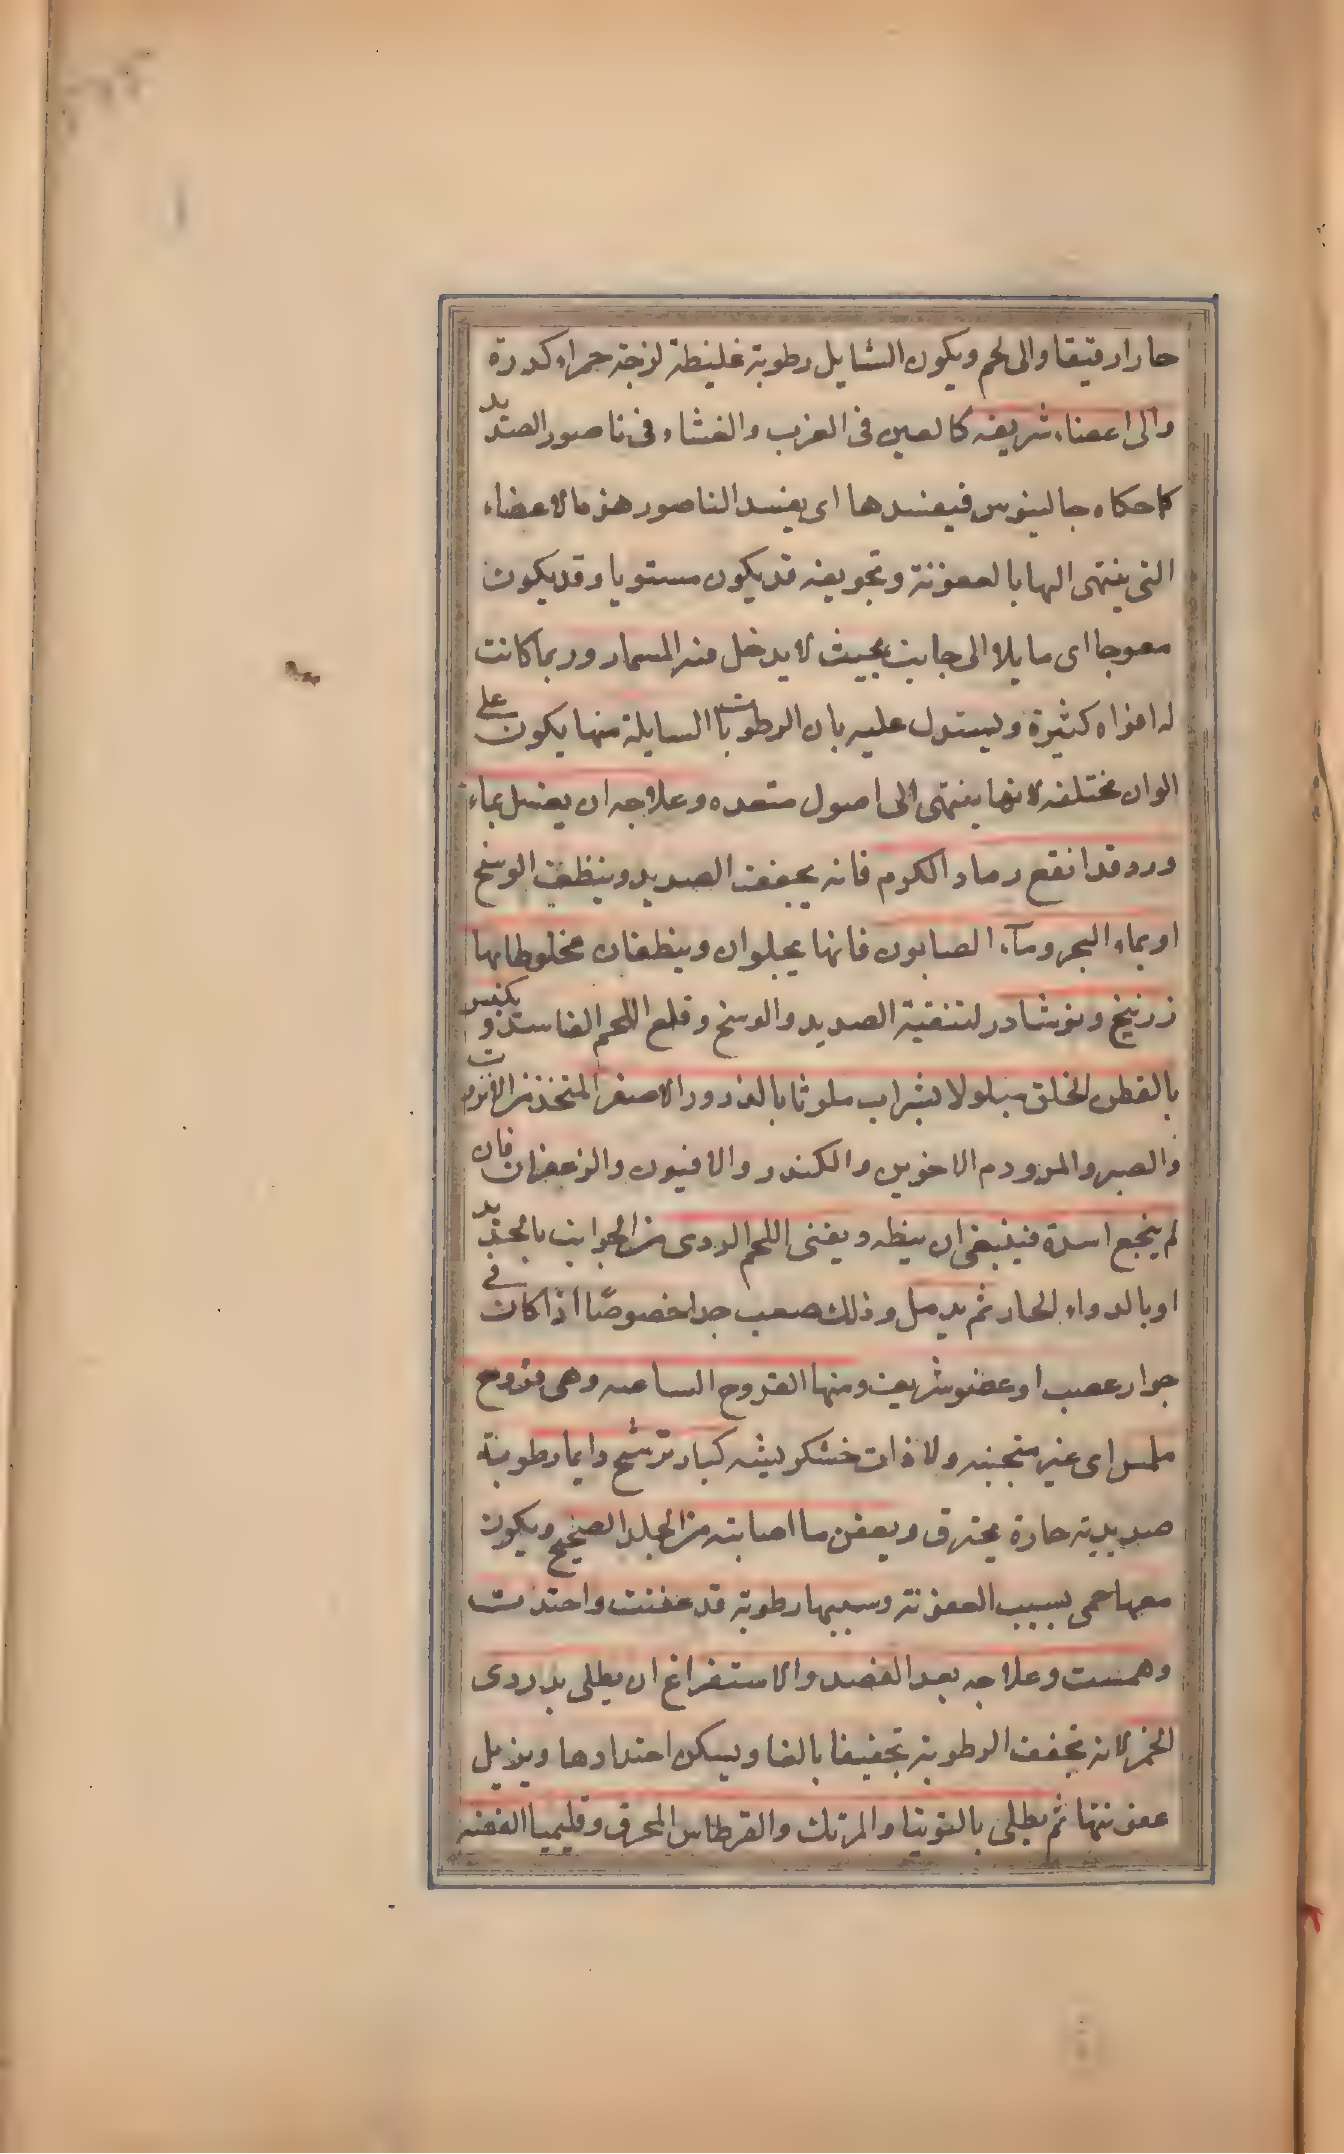 حارا رقيقا والى لحم ويكون السايل رطوبة غليظة لزجة حمراء كدرة
والى اعضاء شريفه كالعين فى الغرب والغشاء فى ناصور الصديد
كما حكاه جالينوس فيفسدها اى يفسد الناصور هذه الاعضاء
التى ينتهى اليها بالعفونة وتجويفه قد يكون مستويا وقد يكون
معوجا اى مايلا الى جانب بحيث لا يدخل فيه المسمار وربما كانت
له افواه كثيرة ويستدل عليه بان الرطوبات السايلة منها يكون على
الوان مختلفه لانها ينتهى الى اصول متعدده وعلاجه ان يغسل بماء
ورد قد انقع رماد الكرم فانه يجفف الصديد وينظف الوسخ
او بماء البحر وماء الصابون فانها يجلوان وينظفان مخلوطا بها
زرنيخ ونوشادر لتنقية الصديد والوسخ وقلع اللحم الفاسد و يكبس
بالقطن الخلق مبلولا بشراب ملوثا بالذرور الاصفر المتخذ من الانزروت
والصبر والمر ودم الاخوين والكندر والافيون والزعفران فان
لم ينجع اسدة فينبغى ان يبطه ويفنى اللحم الردى من الجوانب بالحديد
او بالدواء الحار ثم يدمل وذلك صعب جدا خصوصًا اذا كان فى
جوار عصب او عضو شريف ومنها القروح الساعيه وهى قروح
ملس اى غير متجبنه ولا ذات خشكريشه كبار ترشح دايما رطوبة
صديدية حارة يحترق ويعفن ما اصابته من الجلد الصحيح ويكون
معها حمى بسبب العفونة وسببها رطوبة قد عفنت واحتدت
وهمست وعلاجه بعد الفصد والاستفراغ ان يطلى بدردى
الخمر لانه يجفف الرطوبة تجفيفا بالغا ويسكن احتدادها ويزيل
عفونتها ثم يطلى بالتوتيا والمرتك والقرطاس المحرق وقليميا الفضه